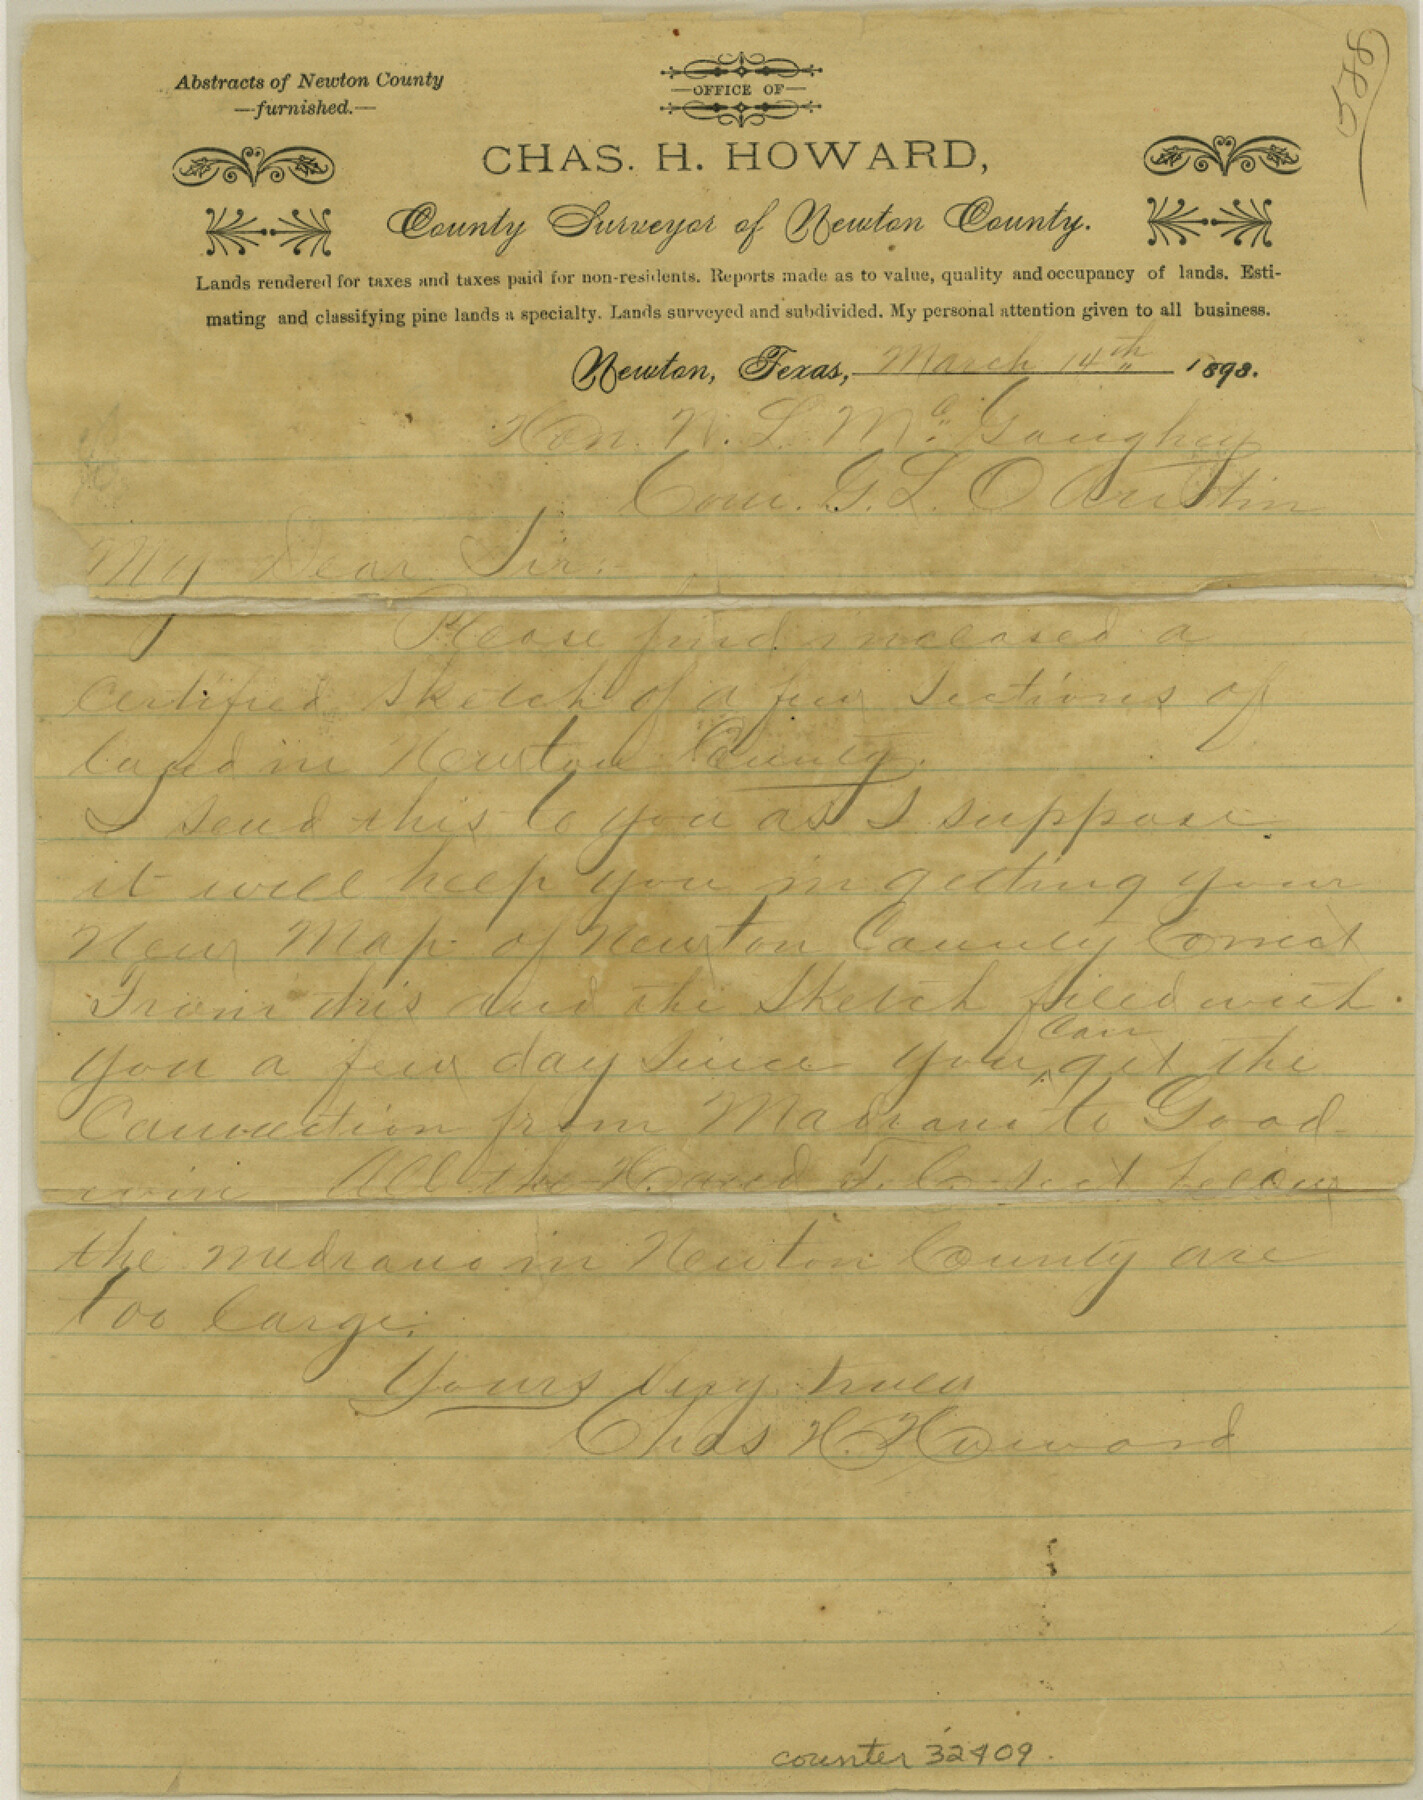 588
Abstracts of Newton County
—furnished.—
—OFFICE OF—
CHAS. H. HOWARD,
County Surveyor of Newton County.
Lands rendered for taxes and taxes paid for non-residents. Reports made as to value, quality and occupancy of lands. Esti-
mating and classifying pine lands a specialty. Lands surveyed and subdivided. My personal attention given to all business.
Newton, Texas, March 14th 1898.
Hon. N. L. McGaughey
Com. G. L. O Austin
My Dear Sir:
Please find inclosed a
Certified Sketch of a few Sections of
land in Newton County.
I send this to you as I suppose
it will help you in getting your
New Map of Newton County Correct
From this and the Sketch filed with
you a few day since you can get the
Connection from Madrano to Good-
win All the H. and T. C. Sect below
the medrano in Newton County are
too large.
Yours Very truly
Chas H. Howard
counter 32409.